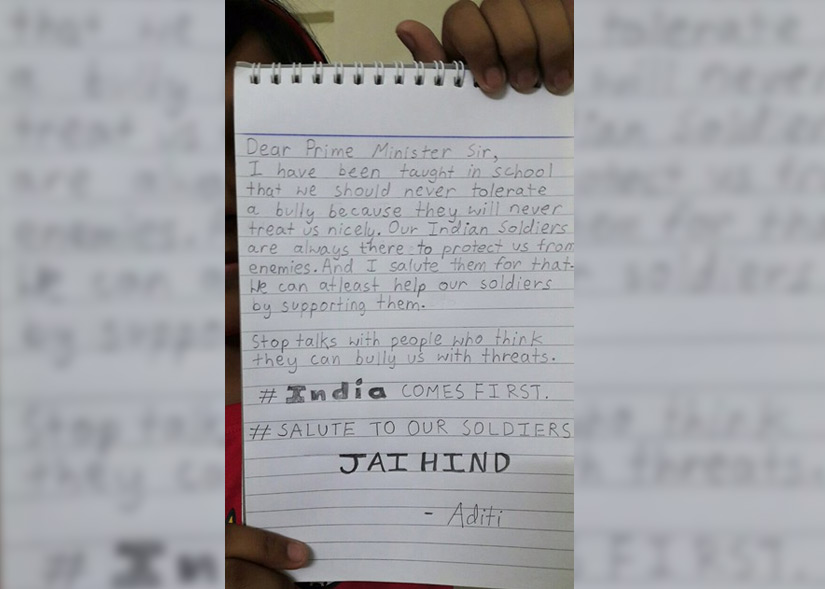 Dear Prime Minister Sir,
I have been taught in school
that we should never tolerate
a bully because they will never
treat us nicely. Our Indian Soldiers
are always there to protect us from
enemies. And I salute them for that.
We can atleast help our soldiers
by supporting them.
Stop talks with people who think
they can bully us with threats.
# India COMES FIRST.
# SALUTE TO OUR SOLDIERS
JAI HIND
- Aditi